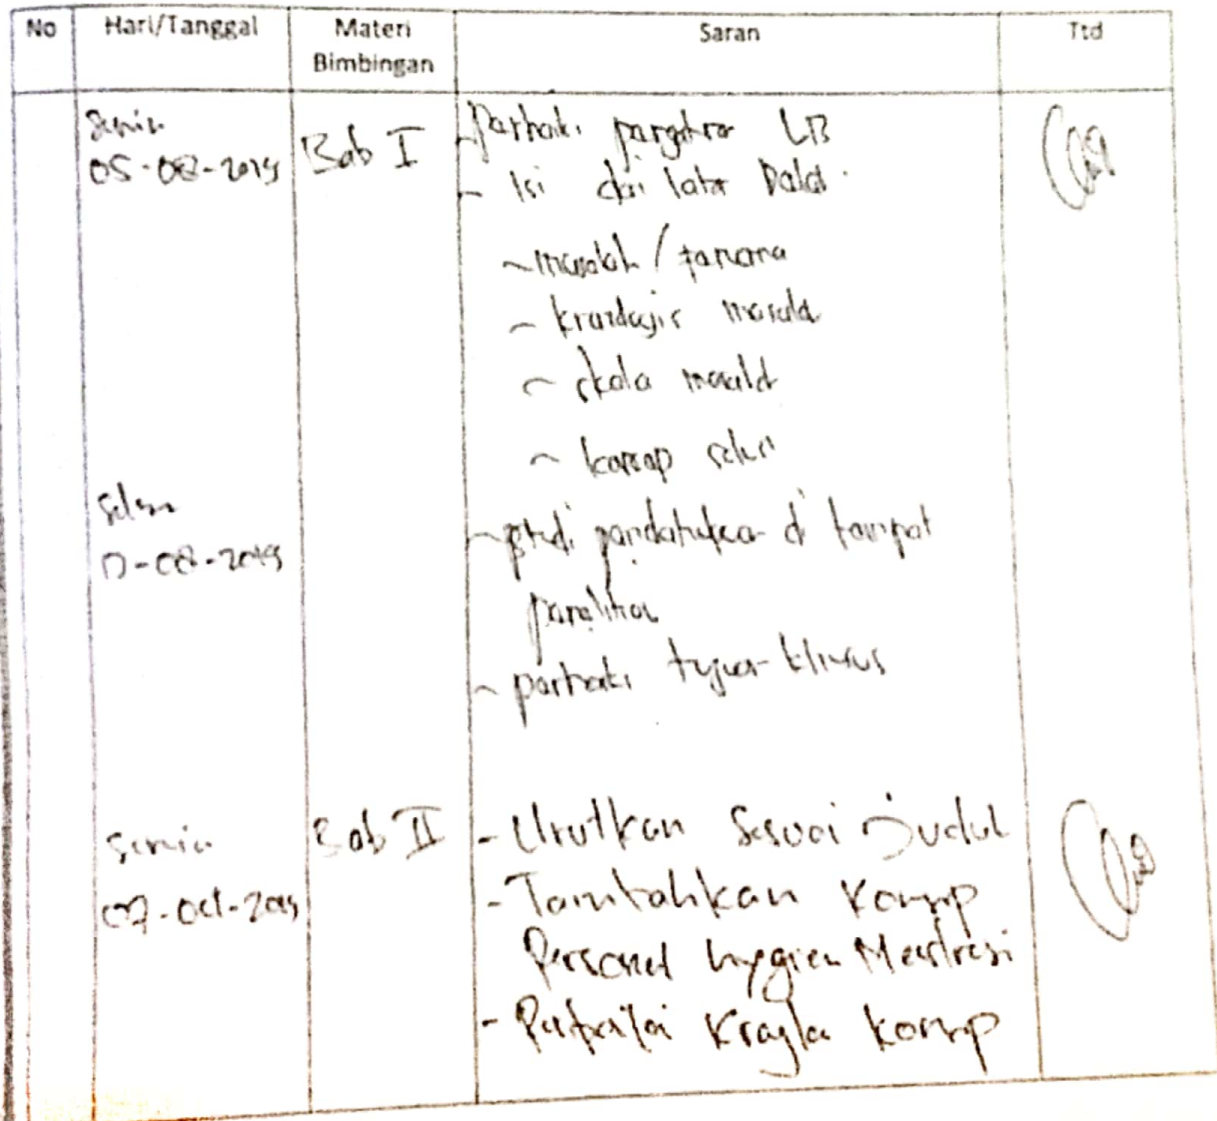 No Hari/Tanggal Materi Bimbingan Saran Ttd
Senin
05-08-2019
Bab I
- Perbaiki LB
- Isi dari latar
~ masalah /
~ masalah
~ skala masalah
~ konsep
Selasa
-08-2019
- studi pendahuluan di tempat
penelitian
- perbaiki tujuan khusus
Senin
07-Oct-2019
Bab II
- Urutkan Sesuai Judul
- Tambahkan Konsep
Personal hygien Menstruasi
- Perbaiki Kragka konsep